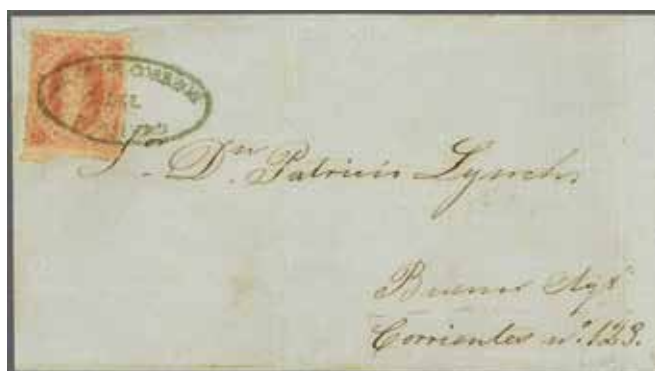 Sor Dn Patricio Lynch,
Buenos Ays
Corrientes nº. 123.